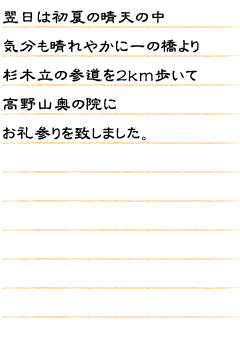 翌日は初夏の晴天の中
気分も晴れやかに一の橋より
杉木立の参道を2km歩いて
高野山奥の院に
お礼参りを致しました。